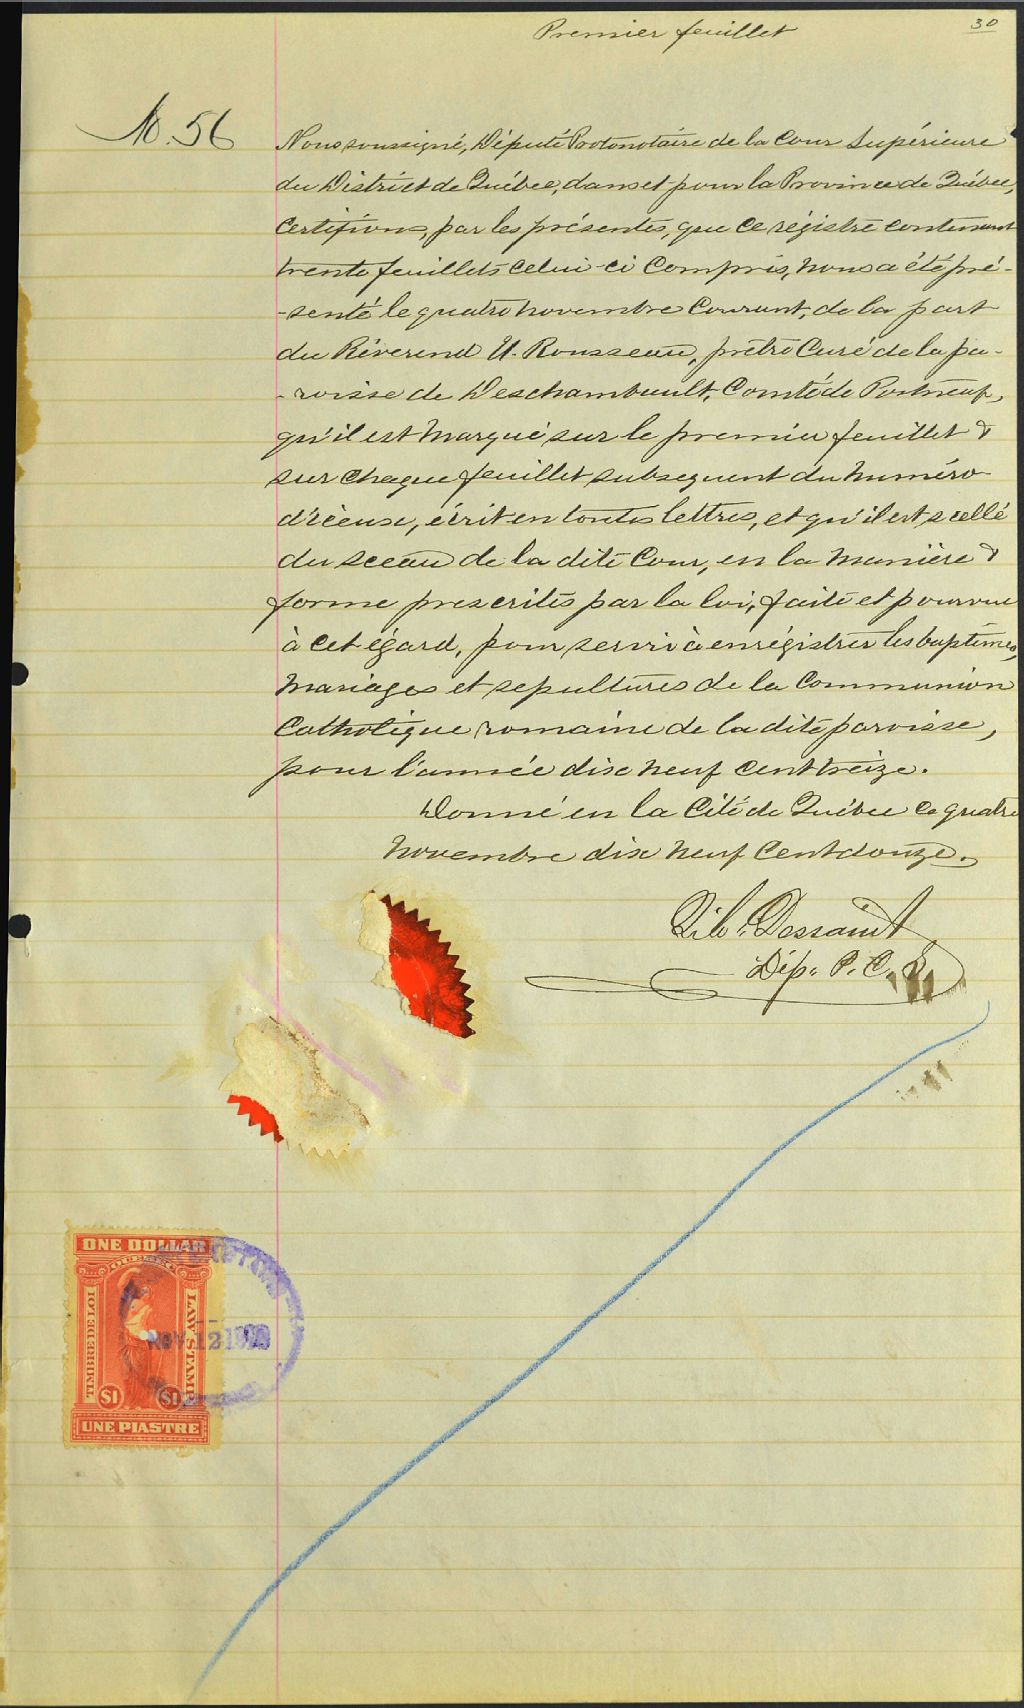 Premier feuillet
30
No. 56
Nous soussigné, Député Protonotaire de la Cour Supérieure
du District de Québec, dans et pour la Province de Québec,
Certifions, par les présentes, que ce régistre contenant
trente feuillets celui-ci compris, nous a été pré-
-senté le quatre novembre courant, de la part
du Réverend U. Rousseau, prêtre Curé de la pa-
-roisse de Deschambault, Comté de Portneuf,
qu'il est marqué sur le premier feuillet &
sur chaque feuillet subsequent du numéro
d'iceux, écrit en toutes lettres, et qu'il est scellé
du sceau de la dite Cour, en la manière &
forme prescrites par la loi, faite et pourvue
à cet égard, pour servir à enrégistrer les baptêmes,
mariages et sepultures de la Communion
Catholique romaine de la dite paroisse,
pour l'année dix neuf cent treize.
Donné en la Cité de Québec ce quatre
novembre dix neuf cent douze.
Dessaint
Dép. P. C. S.
ONE DOLLAR
QUEBEC
TIMBRE DE LOI
LAW STAMP
NOV 12
$1
$1
UNE PIASTRE